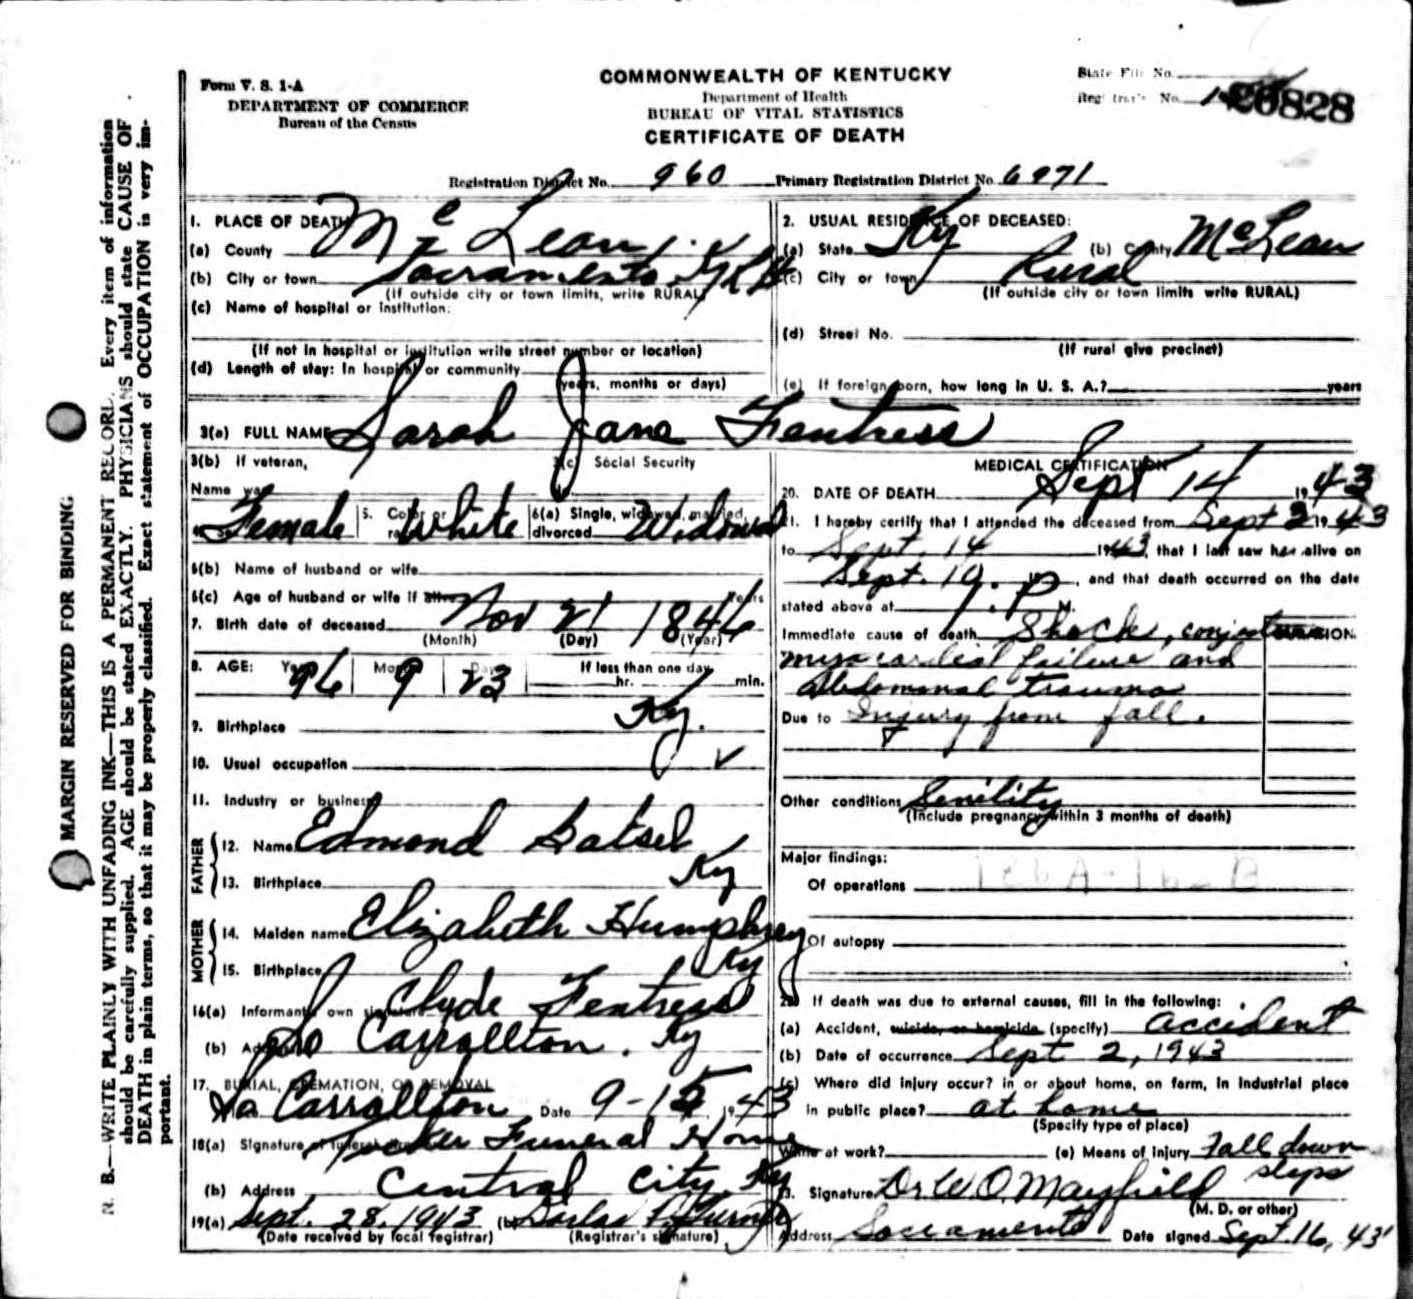 Form V. S. 1-A
DEPARTMENT OF COMMERCE
Bureau of the Census
COMMONWEALTH OF KENTUCKY
Department of Health
BUREAU OF VITAL STATISTICS
CERTIFICATE OF DEATH
State File No.
Registrar's No. 20828
Registration District No. 960 Primary Registration District No. 6971
1. PLACE OF DEATH
(a) County McLean
(b) City or town Sacramento Ky
(If outside city or town limits, write RURAL)
(c) Name of hospital or institution:
(If not in hospital or institution write street number or location)
(d) Length of stay: In hospital or community
(years, months or days)
2. USUAL RESIDENCE OF DECEASED:
(a) State Ky (b) County McLean
(c) City or town Rural
(If outside city or town limits write RURAL)
(d) Street No.
(If rural give precinct)
(e) If foreign born, how long in U. S. A.? years
3(a) FULL NAME Sarah Jane Fentress
3(b) If veteran,
Name war
3(c) Social Security
Female 5. Color or race White 6(a) Single, widowed, married, divorced Widowed
6(b) Name of husband or wife
6(c) Age of husband or wife if alive Years
7. Birth date of deceased Nov 21 1846
(Month) (Day) (Year)
8. AGE: Years 96 Months 9 Days 23 If less than one day
hr. min.
9. Birthplace Ky.
10. Usual occupation
11. Industry or business
FATHER
12. Name Edmond Gatsel
13. Birthplace Ky
MOTHER
14. Maiden name Elizabeth Humphrey
15. Birthplace Ky
16(a) Informant's own signature Clyde Fentress
(b) Address So Carrollton, Ky
17. BURIAL, CREMATION, OR REMOVAL
So Carrollton Date 9-15 1943
18(a) Signature of funeral director Tucker Funeral Home
(b) Address Central City Ky
19(a) Sept. 28, 1943 (b)
(Date received by local registrar) (Registrar's signature)
MEDICAL CERTIFICATION
20. DATE OF DEATH Sept 14 1943
21. I hereby certify that I attended the deceased from Sept 2 1943
to Sept. 14 1943, that I last saw her alive on
Sept. 14, and that death occurred on the date
stated above at 9. P M.
Immediate cause of death Shock, DURATION
myocardial failure and
Abdominal trauma
Due to Injury from fall.
Other conditions Senility
(Include pregnancy within 3 months of death)
Major findings:
Of operations
Of autopsy
22. If death was due to external causes, fill in the following:
(a) Accident, suicide, or homicide (specify) accident
(b) Date of occurrence Sept 2, 1943
(c) Where did injury occur? in or about home, on farm, in industrial place
in public place? at home
(Specify type of place)
While at work? (e) Means of injury Fall down steps
23. Signature Dr W O. Mayfield
(M. D. or other)
Address Sacramento Date signed Sept. 16, 43
MARGIN RESERVED FOR BINDING
N. B.—WRITE PLAINLY WITH UNFADING INK—THIS IS A PERMANENT RECORD. Every item of information
should be carefully supplied. AGE should be stated EXACTLY. PHYSICIANS should state CAUSE OF
DEATH in plain terms, so that it may be properly classified. Exact statement of OCCUPATION is very im-
portant.